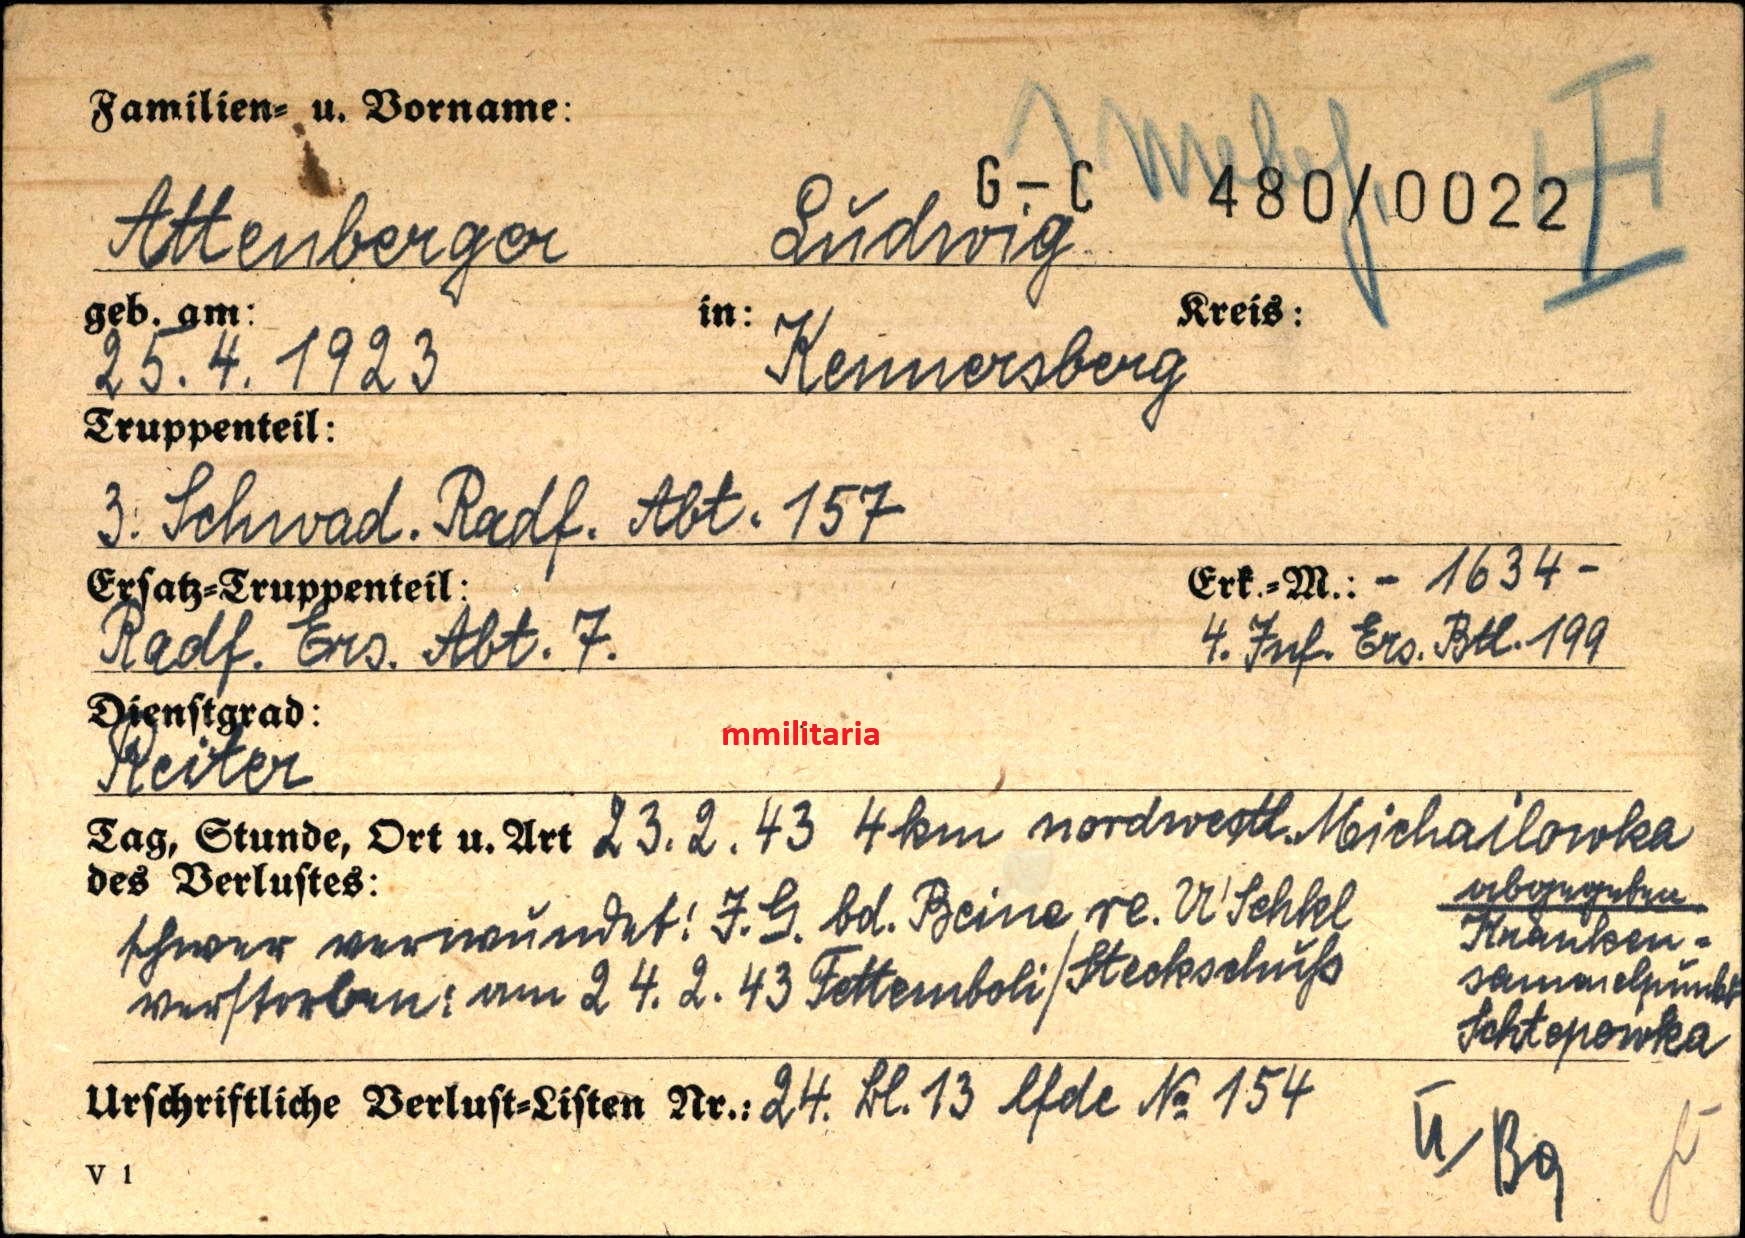 Familien- u. Vorname:
G-C 480/0022
II
Attenberger Ludwig
geb. am: in: Kreis:
25.4.1923 Kennersberg
Truppenteil:
3. Schwad. Radf. Abt. 157
Ersatz-Truppenteil: Erk.-M.: - 1634 -
Radf. Ers. Abt. 7. 4. Inf. Ers. Btl. 199
Dienstgrad:
mmilitaria
Reiter
Tag, Stunde, Ort u. Art 23.2.43 4 km nordwestl. Michailowka
des Verlustes:
schwer verwundet: J.G. bd. Beine re. U'Schkl
verstorben: am 24.2.43 Fettemboli/Steckschuß
abgegeben
Kranken-
sammelpunkt
Schtepowka
Urschriftliche Verlust-Listen Nr.: 24. Bl. 13 lfde № 154
V 1